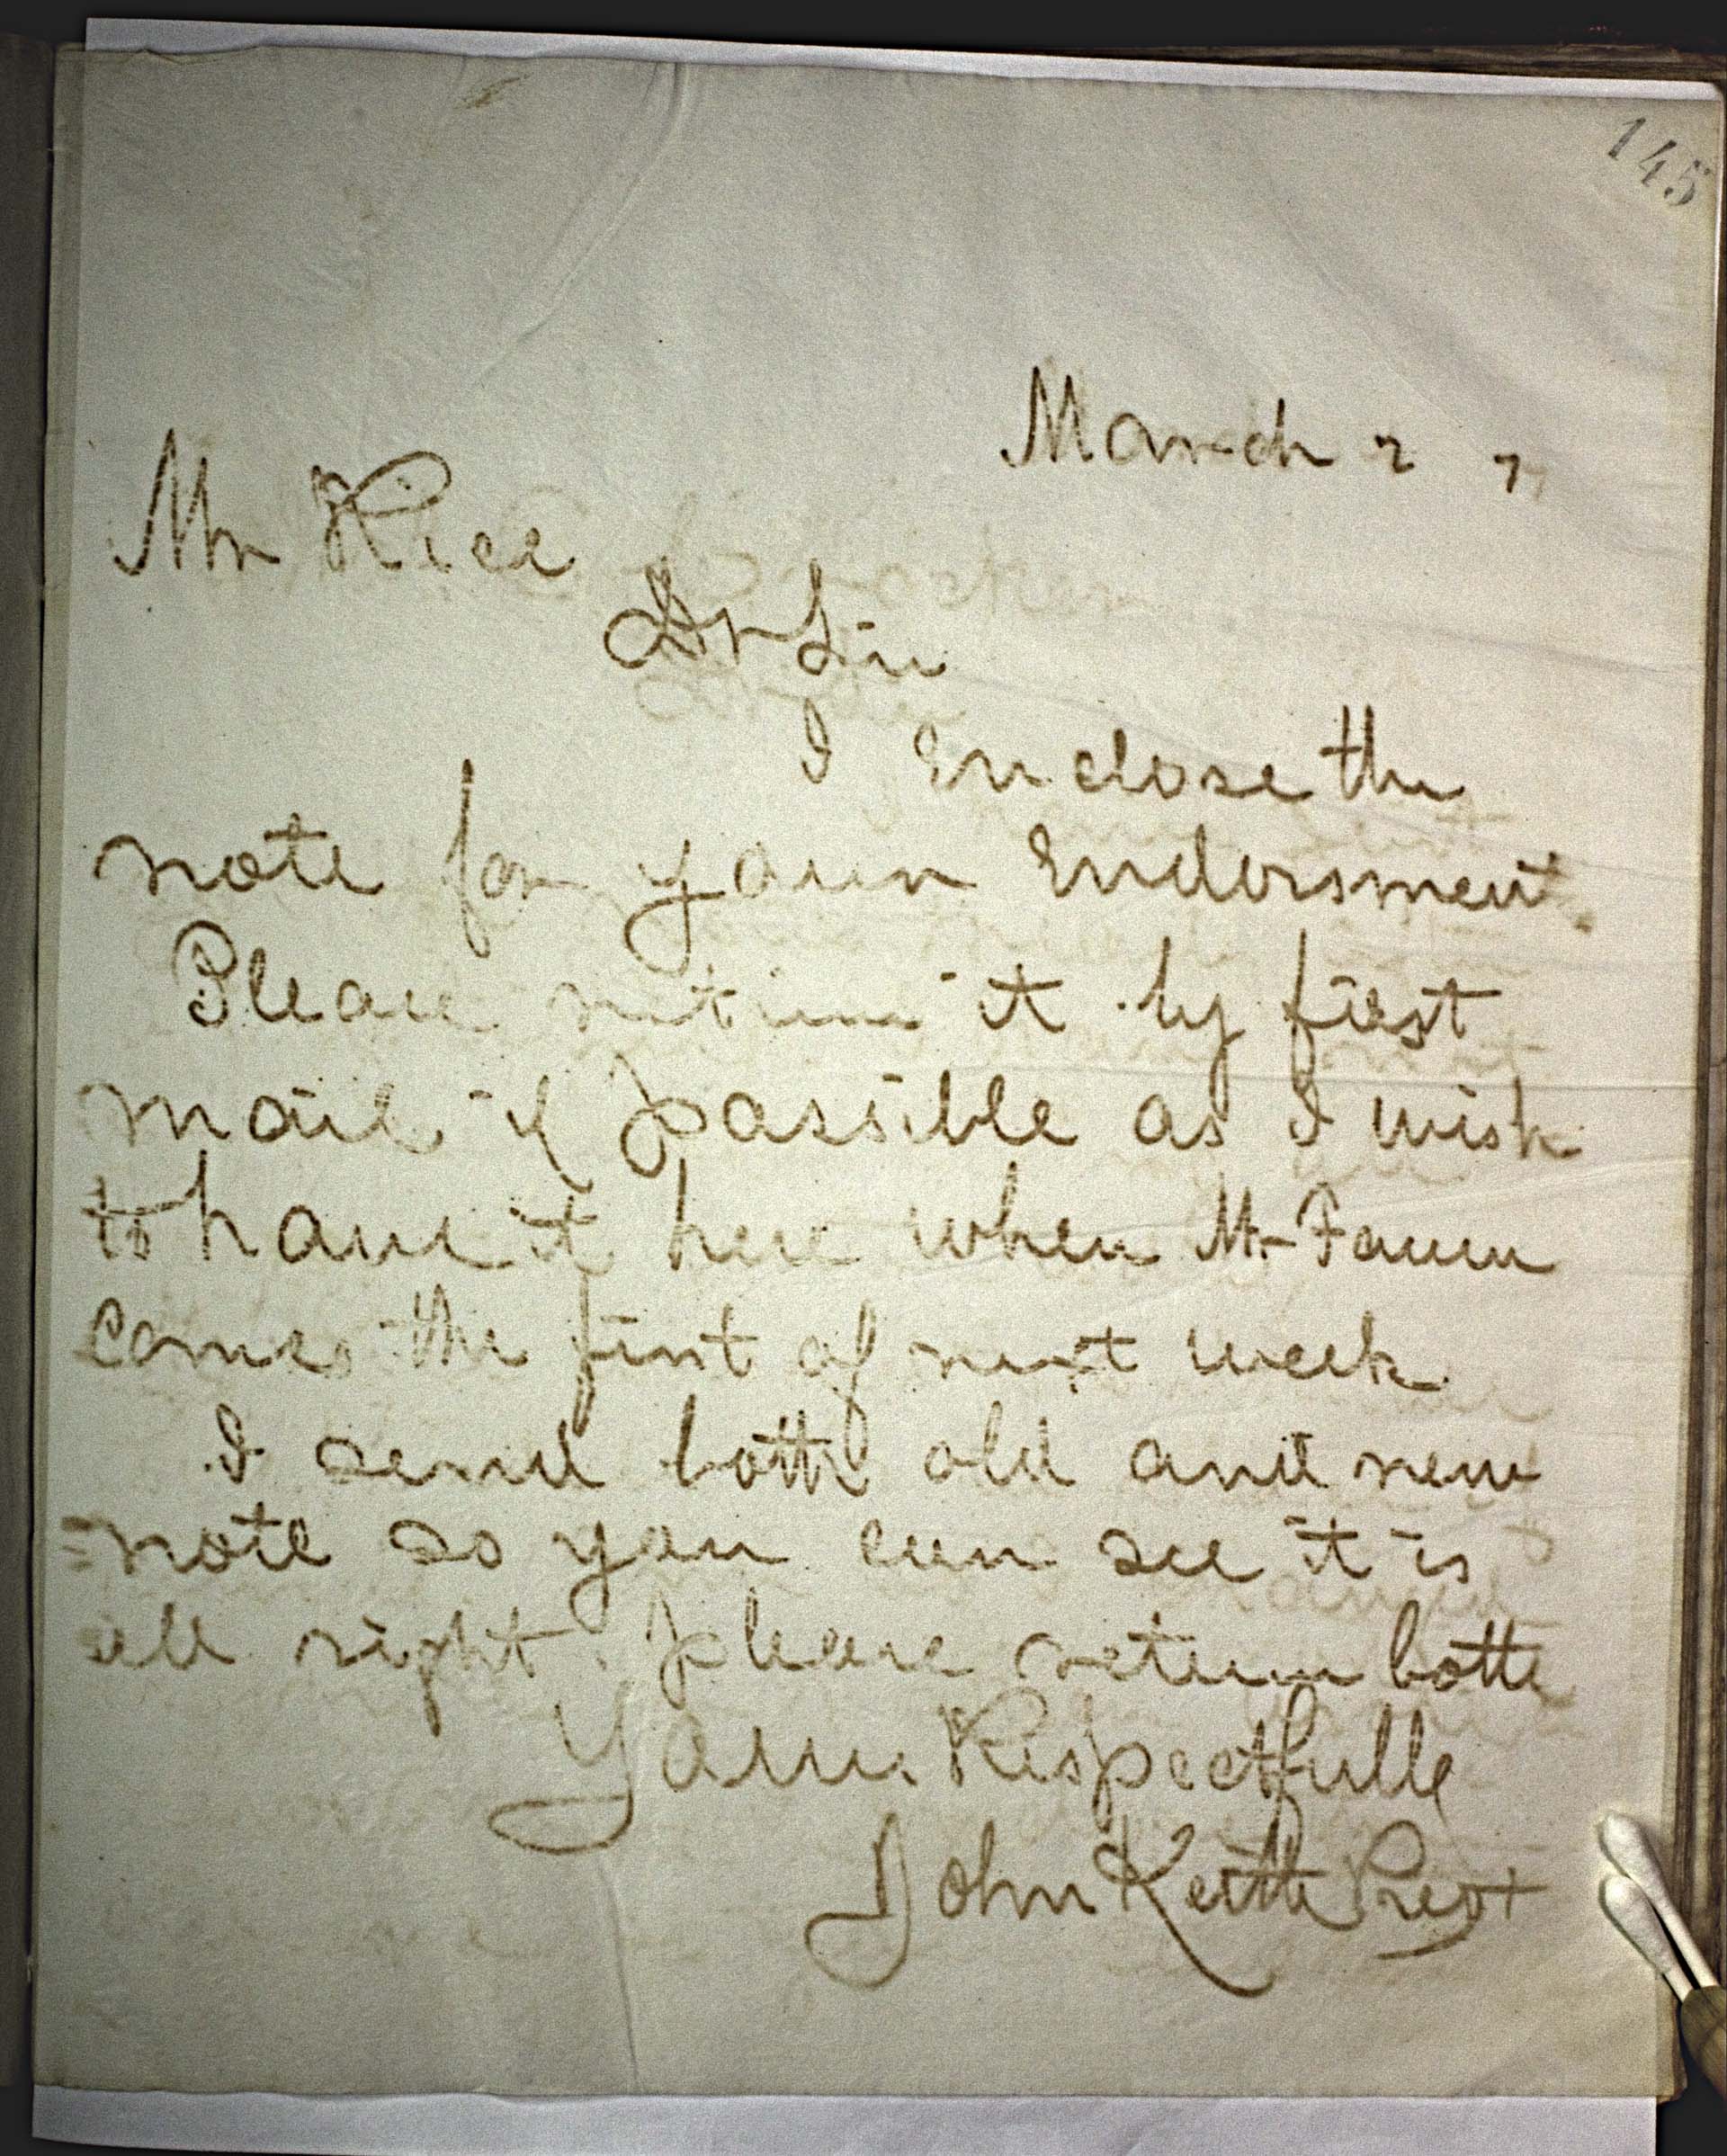 145
March 2 7
Mr Rice
Dr Sir
I enclose the
note for your endorsment
Please return it by first
mail if possible as I wish
to have it here when Mr
comes the first of next week
I send both old and new
note so you can see it is
all right. please return both
Yours Respectfully
John Keith